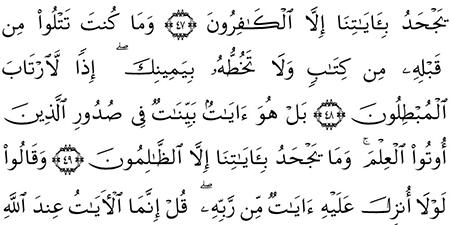 يَجْحَدُ بِـَٔايَٰتِنَآ إِلَّا ٱلْكَٰفِرُونَ ٤٧ وَمَا كُنتَ تَتْلُوا۟ مِن
قَبْلِهِۦ مِن كِتَٰبٍ وَلَا تَخُطُّهُۥ بِيَمِينِكَ ۖ إِذًا لَّٱرْتَابَ
ٱلْمُبْطِلُونَ ٤٨ بَلْ هُوَ ءَايَٰتٌۢ بَيِّنَٰتٌ فِى صُدُورِ ٱلَّذِينَ
أُوتُوا۟ ٱلْعِلْمَ ۚ وَمَا يَجْحَدُ بِـَٔايَٰتِنَآ إِلَّا ٱلظَّٰلِمُونَ ٤٩ وَقَالُوا۟
لَوْلَآ أُنزِلَ عَلَيْهِ ءَايَٰتٌ مِّن رَّبِّهِۦ ۖ قُلْ إِنَّمَا ٱلْـَٔايَٰتُ عِندَ ٱللَّهِ